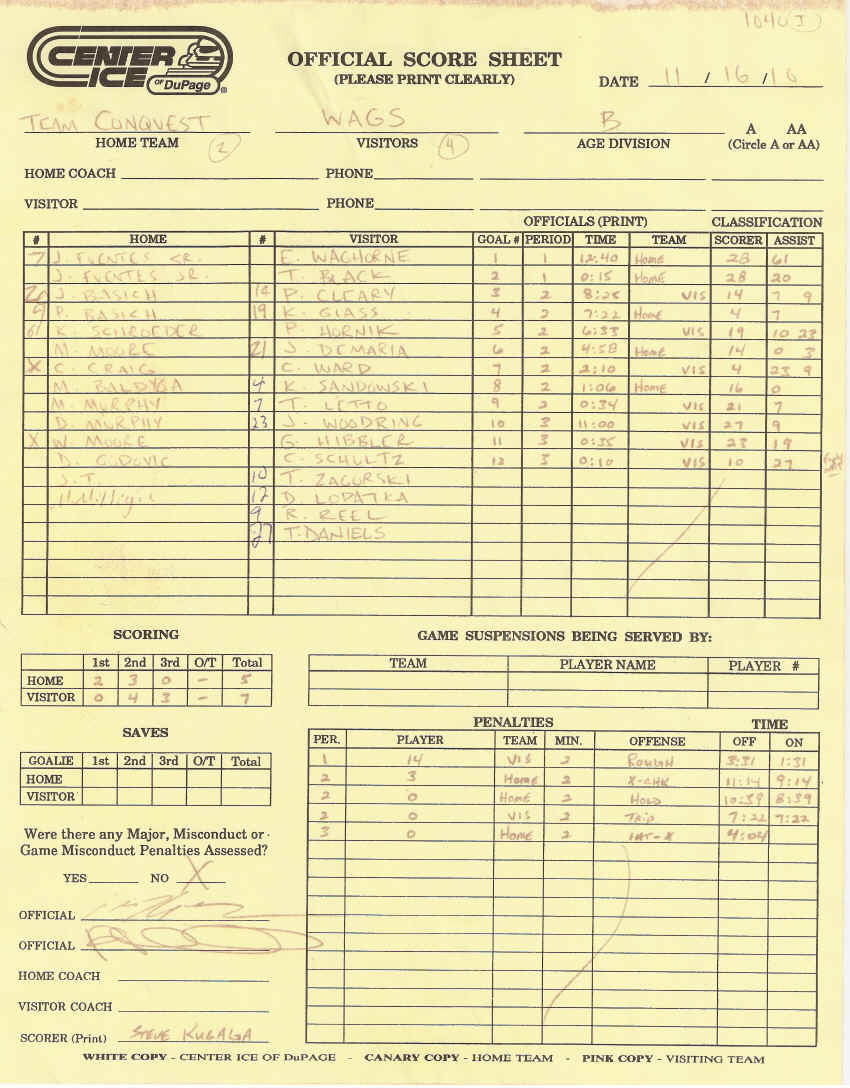 CENTER ICE of DuPage ®
OFFICIAL SCORE SHEET
(PLEASE PRINT CLEARLY)
DATE 11 / 16 / 10
TEAM CONQUEST WAGS B A AA
HOME TEAM 2 VISITORS 4 AGE DIVISION (Circle A or AA)
HOME COACH PHONE
VISITOR PHONE
OFFICIALS (PRINT) CLASSIFICATION
# HOME # VISITOR GOAL # PERIOD TIME TEAM SCORER ASSIST
7 J. FUENTES SR. E. WAGHORNE 1 1 12:40 Home 28 61
J. FUENTES JR. T. BLACK 2 1 0:15 Home 28 20
20 J. BASICH 14 P. CLEARY 3 2 8:25 VIS 14 7 9
9 P. BASICH 19 K. GLASS 4 2 7:22 Home 4 7
61 K. SCHROEDER P. HORNIK 5 2 6:33 VIS 19 10 23
M. MOORE 21 J. DEMARIA 6 2 4:58 Home 14 0 3
X C. CRAIG C. WARD 7 2 2:10 VIS 4 23 9
M. BALDYGA 4 K. SANDOWSKI 8 2 1:06 Home 16 0
M. MURPHY 7 T. LETTO 9 2 0:34 VIS 21 7
D. MURPHY 23 J. WOODRING 10 3 11:00 VIS 27 9
X W. MOORE G. HIBBLER 11 3 0:35 VIS 23 19
D. GUDOVIC C. SCHULTZ 12 3 0:10 VIS 10 27
J.T. 10 T. ZAGORSKI
12 D. LOPATKA
9 R. REEL
27 T. DANIELS
SCORING
1st 2nd 3rd O/T Total
HOME 2 3 0 - 5
VISITOR 0 4 3 - 7
SAVES
GOALIE 1st 2nd 3rd O/T Total
HOME
VISITOR
Were there any Major, Misconduct or
Game Misconduct Penalties Assessed?
YES NO X
OFFICIAL
OFFICIAL
HOME COACH
VISITOR COACH
SCORER (Print) STEVE KUGALA
GAME SUSPENSIONS BEING SERVED BY:
TEAM PLAYER NAME PLAYER #
PENALTIES TIME
PER. PLAYER TEAM MIN. OFFENSE OFF ON
1 14 VIS 2 ROUGH 3:31 1:31
2 3 Home 2 X-CHK 11:14 9:14
2 0 Home 2 HOLD 10:39 8:39
2 0 VIS 2 TRIP 7:22 7:22
3 0 Home 2 INT-X 4:04
WHITE COPY - CENTER ICE OF DuPAGE - CANARY COPY - HOME TEAM - PINK COPY - VISITING TEAM